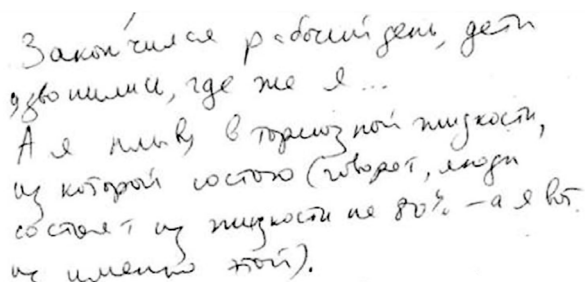 Закончился рабочий день, дети
узвонились, где же я...
А я плыву в тормозной жидкости,
из которой состою (говорят, люди
состоят из жидкости на 80% – а я вот
из именно этой).